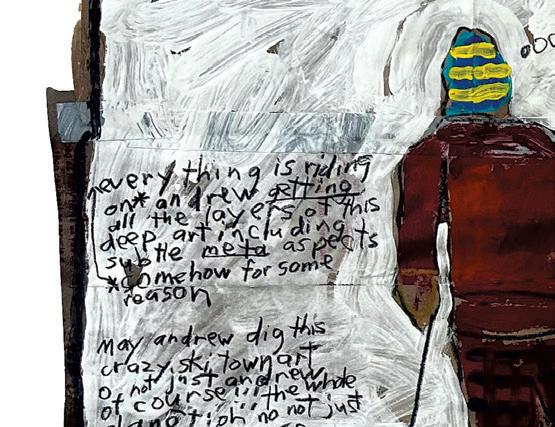 every thing is riding
on* andrew getting
all the layers of this
deep art including
subtle meta aspects
*somehow for some
reason
May andrew dig this
crazy ski town art
o not just andrew
of course!!! the whole
no not just